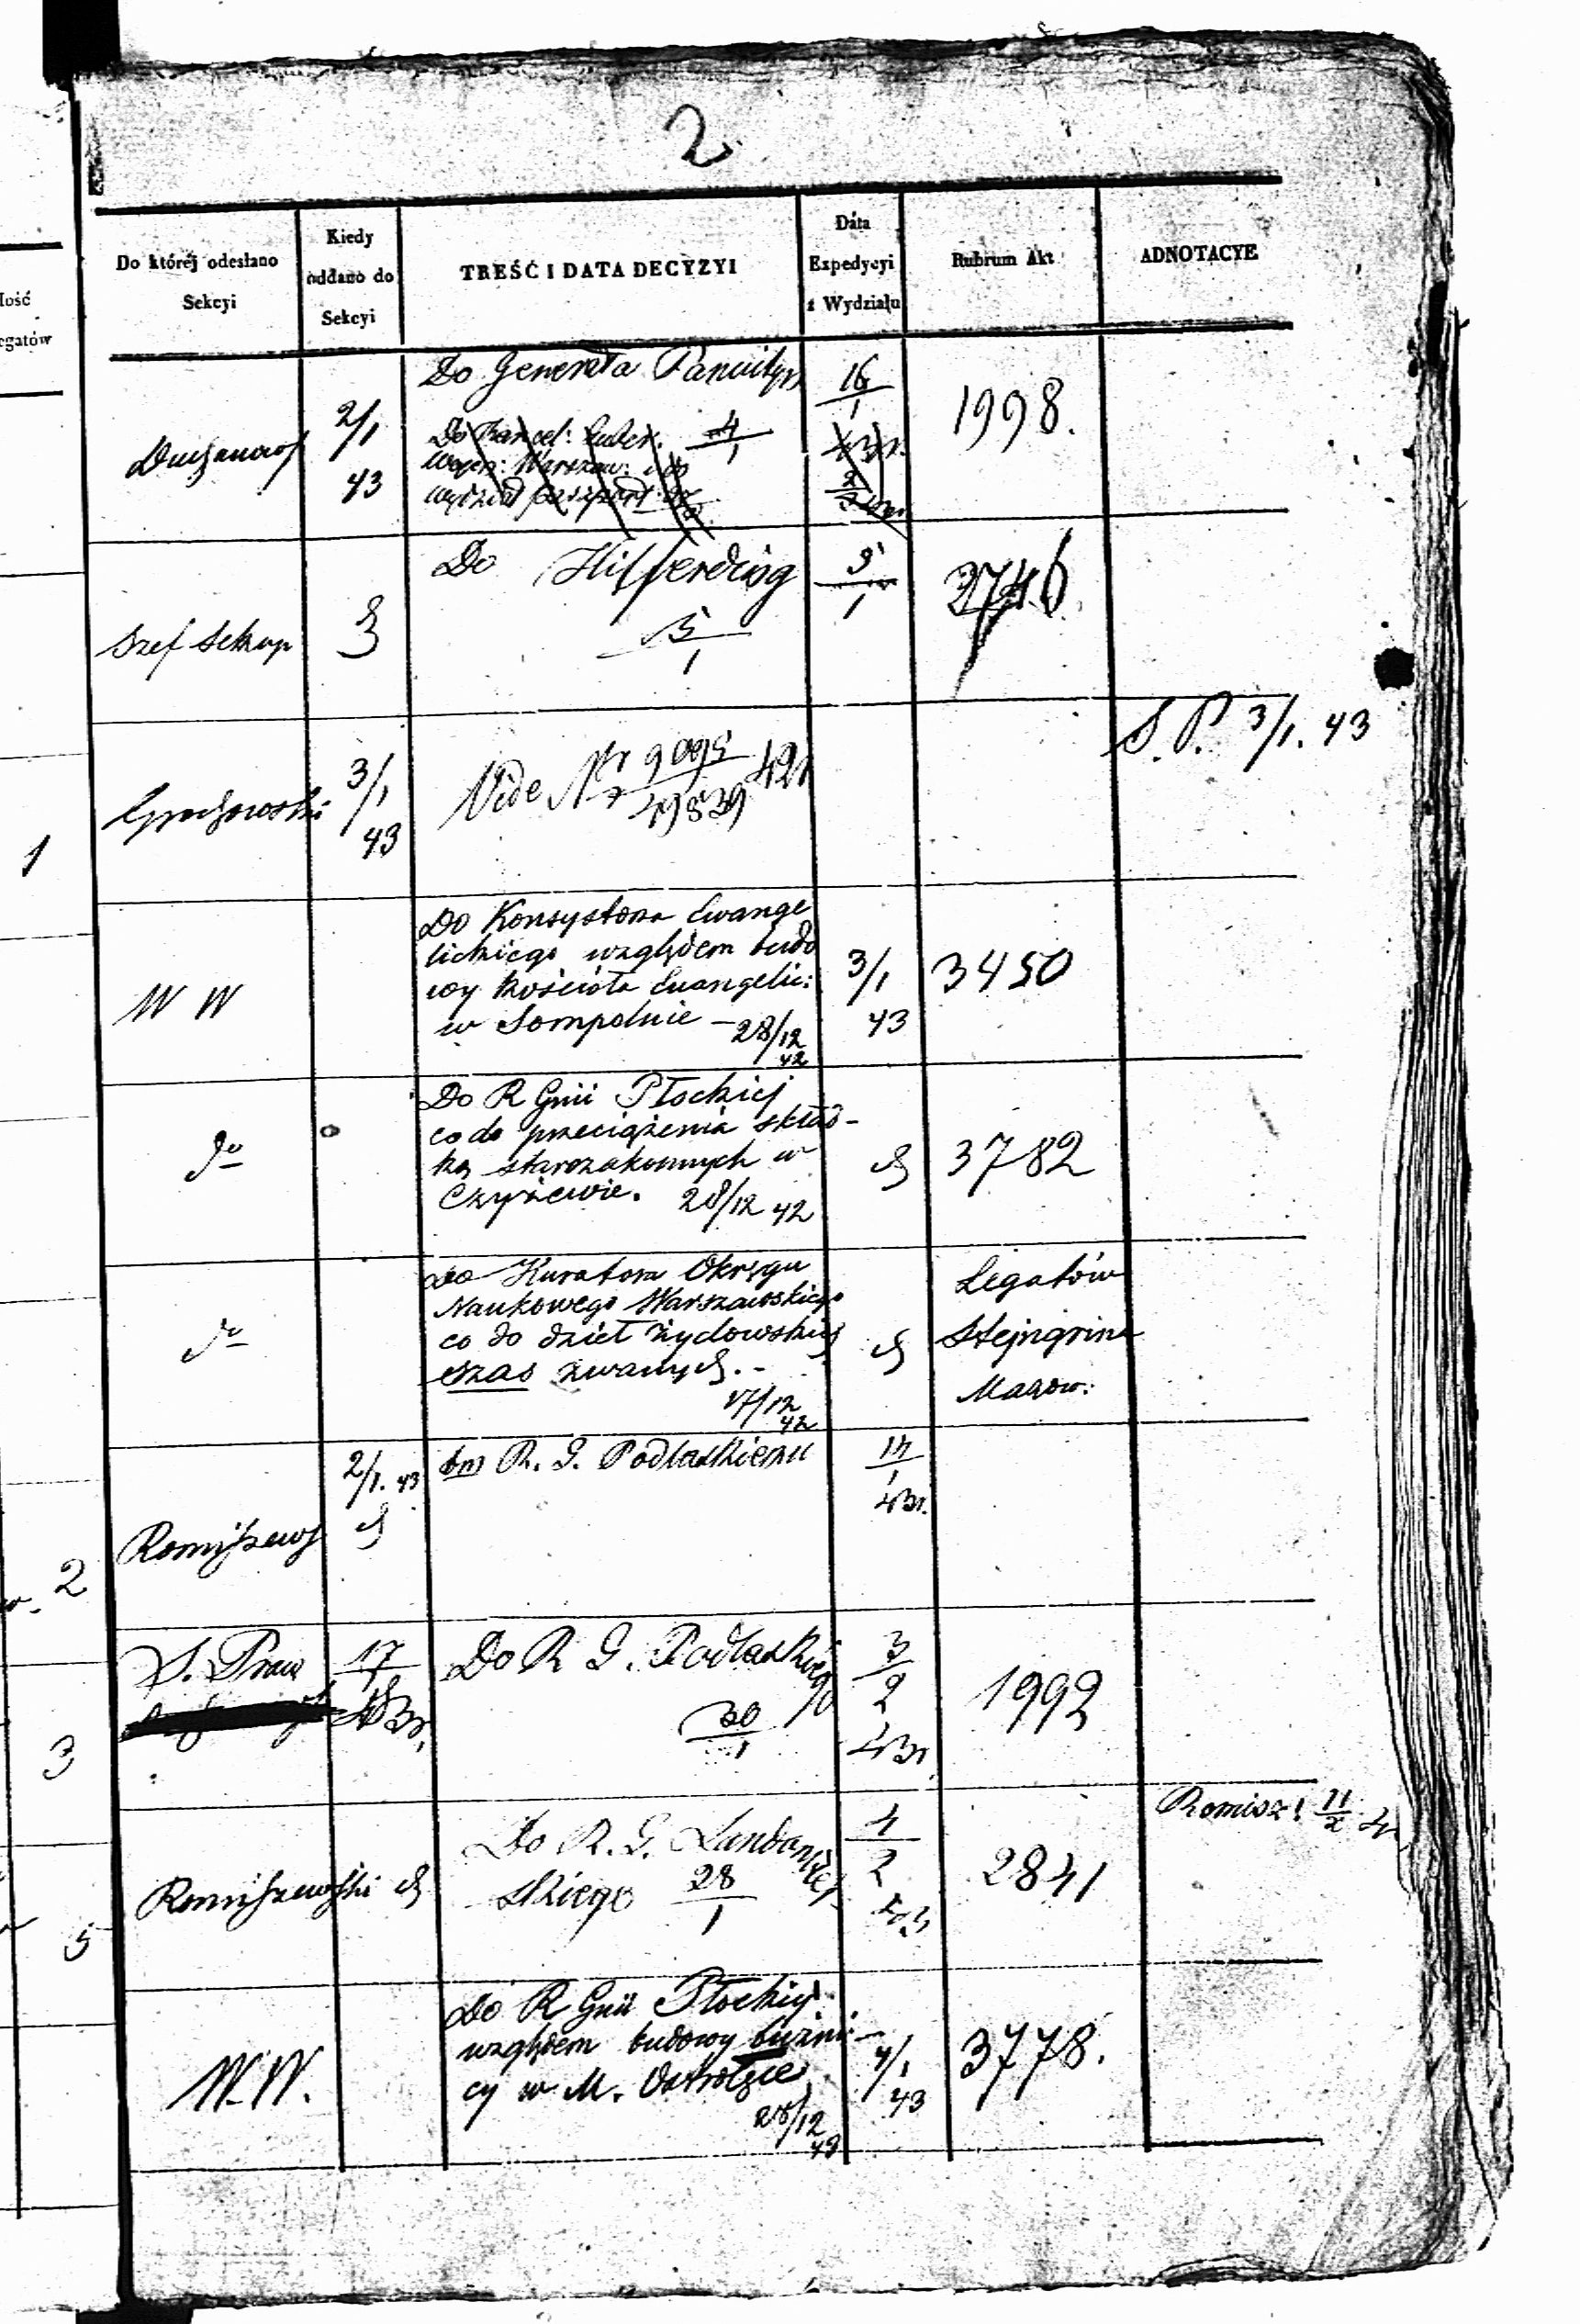 2
ność
egatów
Do której odesłano
Sekcyi
Kiedy
oddano do
Sekcyi
TREŚĆ I DATA DECYZYI
Data
Expedycyi
z Wydziału
Rubrum Akt
ADNOTACYE
2/1
43
Do Generała
Do Kancel:
Wojen: Warszaw:
wydział paszport:
16/1
1998.
Szef Sekcyi
Do Hilferding
5/1
9/1
1
3/1
43
Vide Nr 9095/49539 42
S. P. 3/1. 43
W W
Do Konsystorza Ewange
lickiego względem budo
wy kościoła Ewangelic:
w Sompolnie – 28/12
42
3/1
43
3450
do
Do R Gnii Płockiej
co do przeciążenia skład-
ką starozakonnych w
Czyżewie. 28/12 42
3782
do
do Kuratora Okręgu
Naukowego Warszawskiego
co do dzieł żydowskich
szas zwanych. -
17/12
42
Legatów
Stejngrina
Mazow:
2
2/1. 43
R. G. Podlaskiemu
14/1
43r.
3
S. Praw
17/1
43r.
Do R G. Podlaskiego
30/1
3/2
43r.
1992
5
Romiszewski
Do R. G. Sandomier
skiego 28/1
4/2
43
2841
Romisz: 11/2
W. W.
Do R Gnii Płockiej
względem budowy bużni-
cy w M. Ostrołęce
28/12
42
4/1
43
3778.